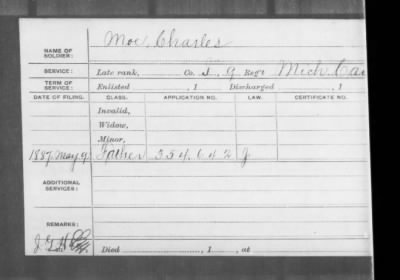 NAME OF SOLDIER: Moe, Charles
SERVICE: Late rank, Co. I, 9 Reg't Mich. Cav
TERM OF SERVICE: Enlisted , 1 Discharged , 1
DATE OF FILING. CLASS. APPLICATION NO. LAW. CERTIFICATE NO.
Invalid,
Widow,
Minor,
1887 May 9 Father 354642 J
ADDITIONAL SERVICES:
REMARKS:
Died , 1 , at